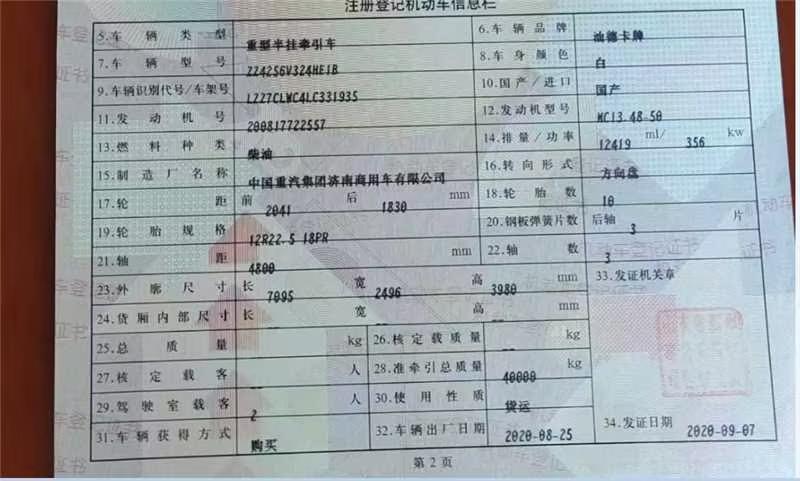 注册登记机动车信息栏
5.车辆类型 重型半挂牵引车 6.车辆品牌 汕德卡牌
7.车辆型号 ZZ4256V324HE1B 8.车身颜色 白
9.车辆识别代号/车架号 LZZ7CLWC4LC331935 10.国产/进口 国产
11.发动机号 200817722557 12.发动机型号 MC13.48-50
13.燃料种类 柴油 14.排量/功率 12419 ml/ 356 kw
15.制造厂名称 中国重汽集团济南商用车有限公司 16.转向形式 方向盘
17.轮距 前 2041 后 1830 mm 18.轮胎数 10
19.轮胎规格 12R22.5 18PR 20.钢板弹簧片数 后轴 3 片
21.轴距 4800 mm 22.轴数 3
23.外廓尺寸 长 7095 宽 2496 高 3980 mm 33.发证机关章
24.货厢内部尺寸 长 -- 宽 -- 高 -- mm
25.总质量 kg 26.核定载质量 -- kg
27.核定载客 -- 人 28.准牵引总质量 40000 kg
29.驾驶室载客 2 人 30.使用性质 货运
31.车辆获得方式 购买 32.车辆出厂日期 2020-08-25 34.发证日期 2020-09-07
第2页